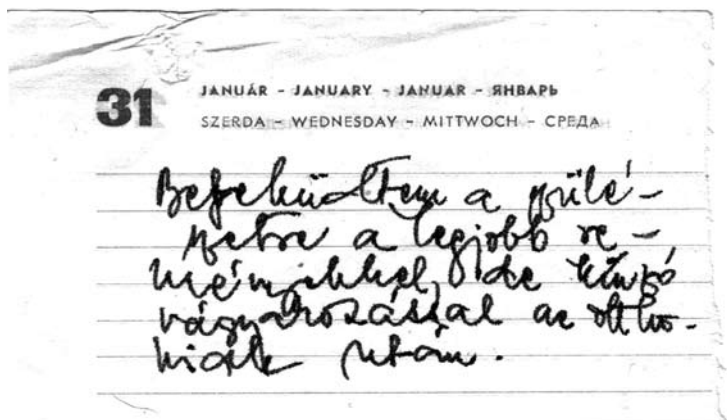 31
JANUÁR - JANUARY - JANUAR - ЯНВАРЬ
SZERDA - WEDNESDAY - MITTWOCH - СРЕДА
Befeküdtem a szülé-
szetre a legjobb re-
ményekkel, de kínzó
vágyakozással az ottho-
niak után.